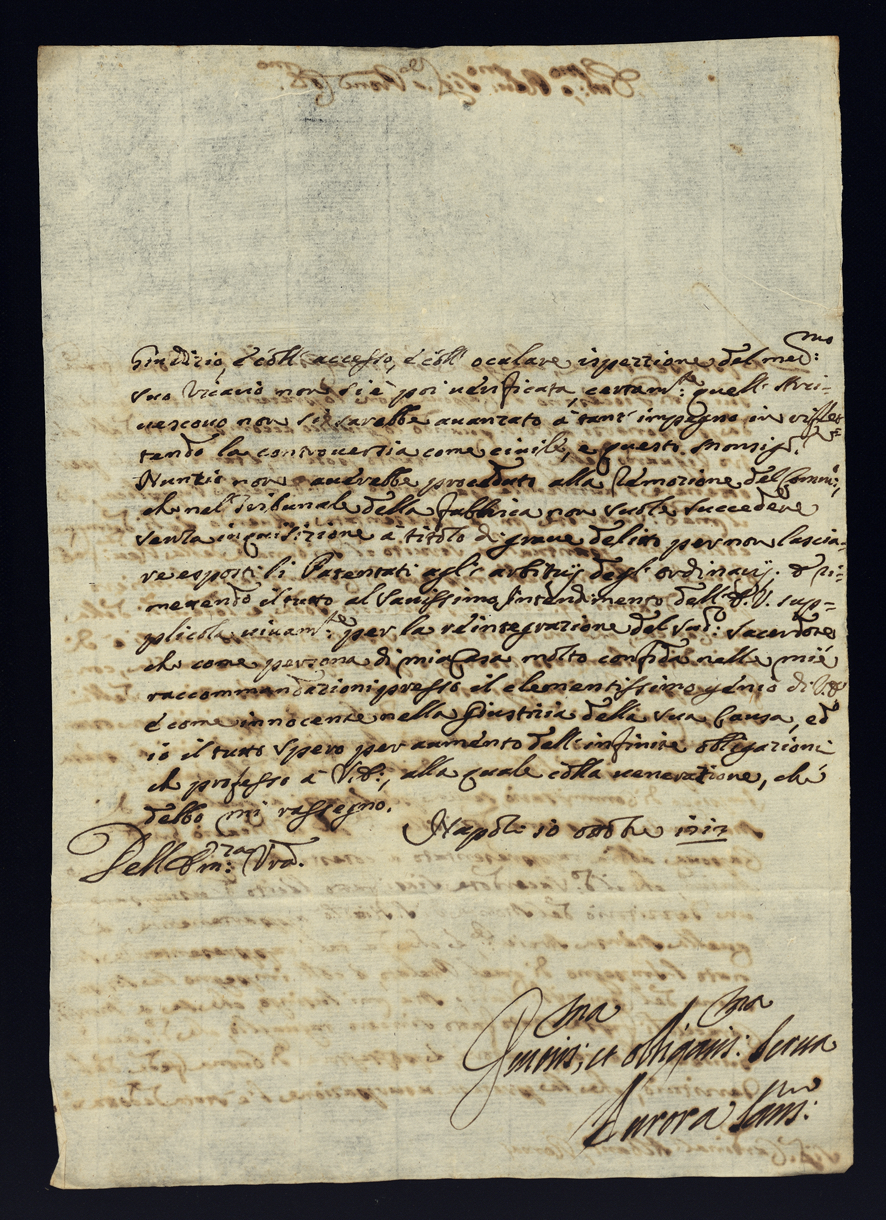 Giudizio, è coll' accesso, è coll' oculare ispezzione del med:mo
suo Vicario non si è poi uerificata, certam.te quell' Arci-
uescouo non si sarebbe auanzato à tant' impegno in
tendo la controuersia come ciuile, e questo Monsig.r
Nunzio non auerebbe proceduto alla remozione del
che nel Tribunale della fabbrica non suole succedere
senza inquisizione à titolo di graue delitto per non lascia-
re esposti li Patentati agl' arbitrij degl' ordinarij. & ri-
mettendo il tutto al sauissimo Intendimento dell' E.V. sup-
plicola uiuam.te per la reintegrazione del sud.o sacerdote
che come persona di mia Casa molto confida nelle mie
raccommandazioni presso il clementissimo genio di V.E.
è come innocente nella Giustizia della sua Causa, ed
io il tutto spero per aumento dell' infinite obligazioni
che professo à V.E:, alla quale colla ueneratione, che
debbo mi rassegno.
Napoli 10 ottobre
Dell' Em:za Vra.
et obligatis:ma Serua
Aurora Sans:no